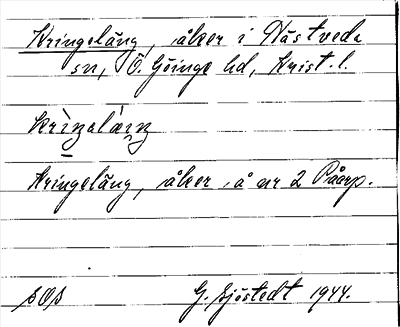 Kringeläng, åker i Nästveda
sn, Ö. Göinge hd, Krist. l.
Kringeläng, åker å nr 2 Påarp.
SOS G. Sjöstedt 1944.